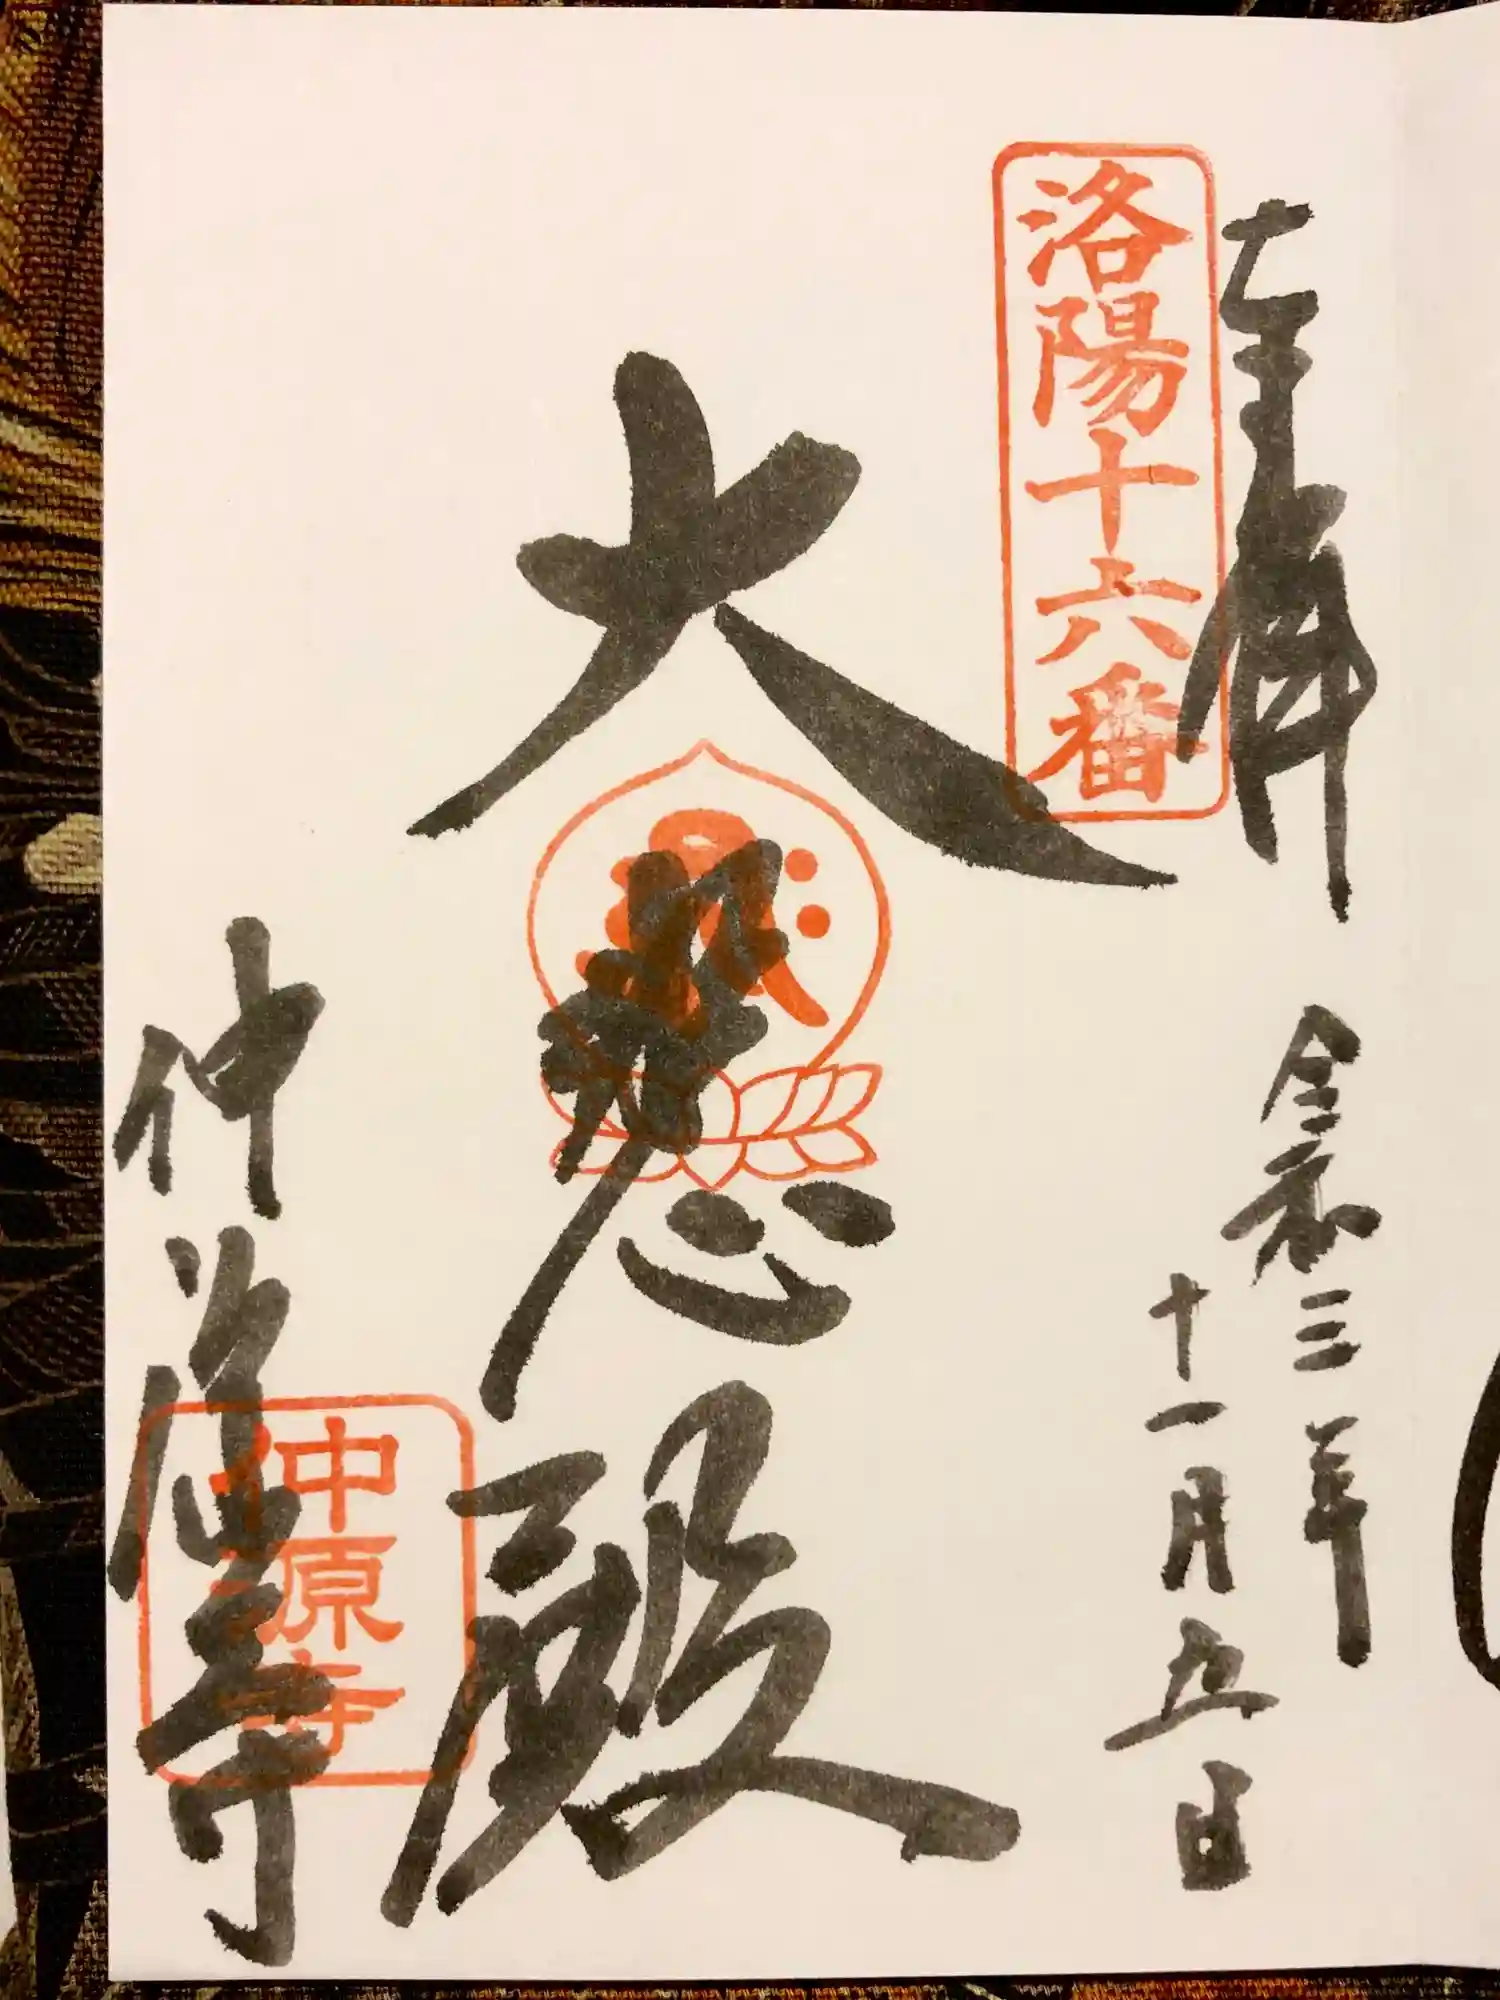 奉拝
洛陽十六番
令和三年
十一月五日
大悲殿
仲源寺
仲源寺